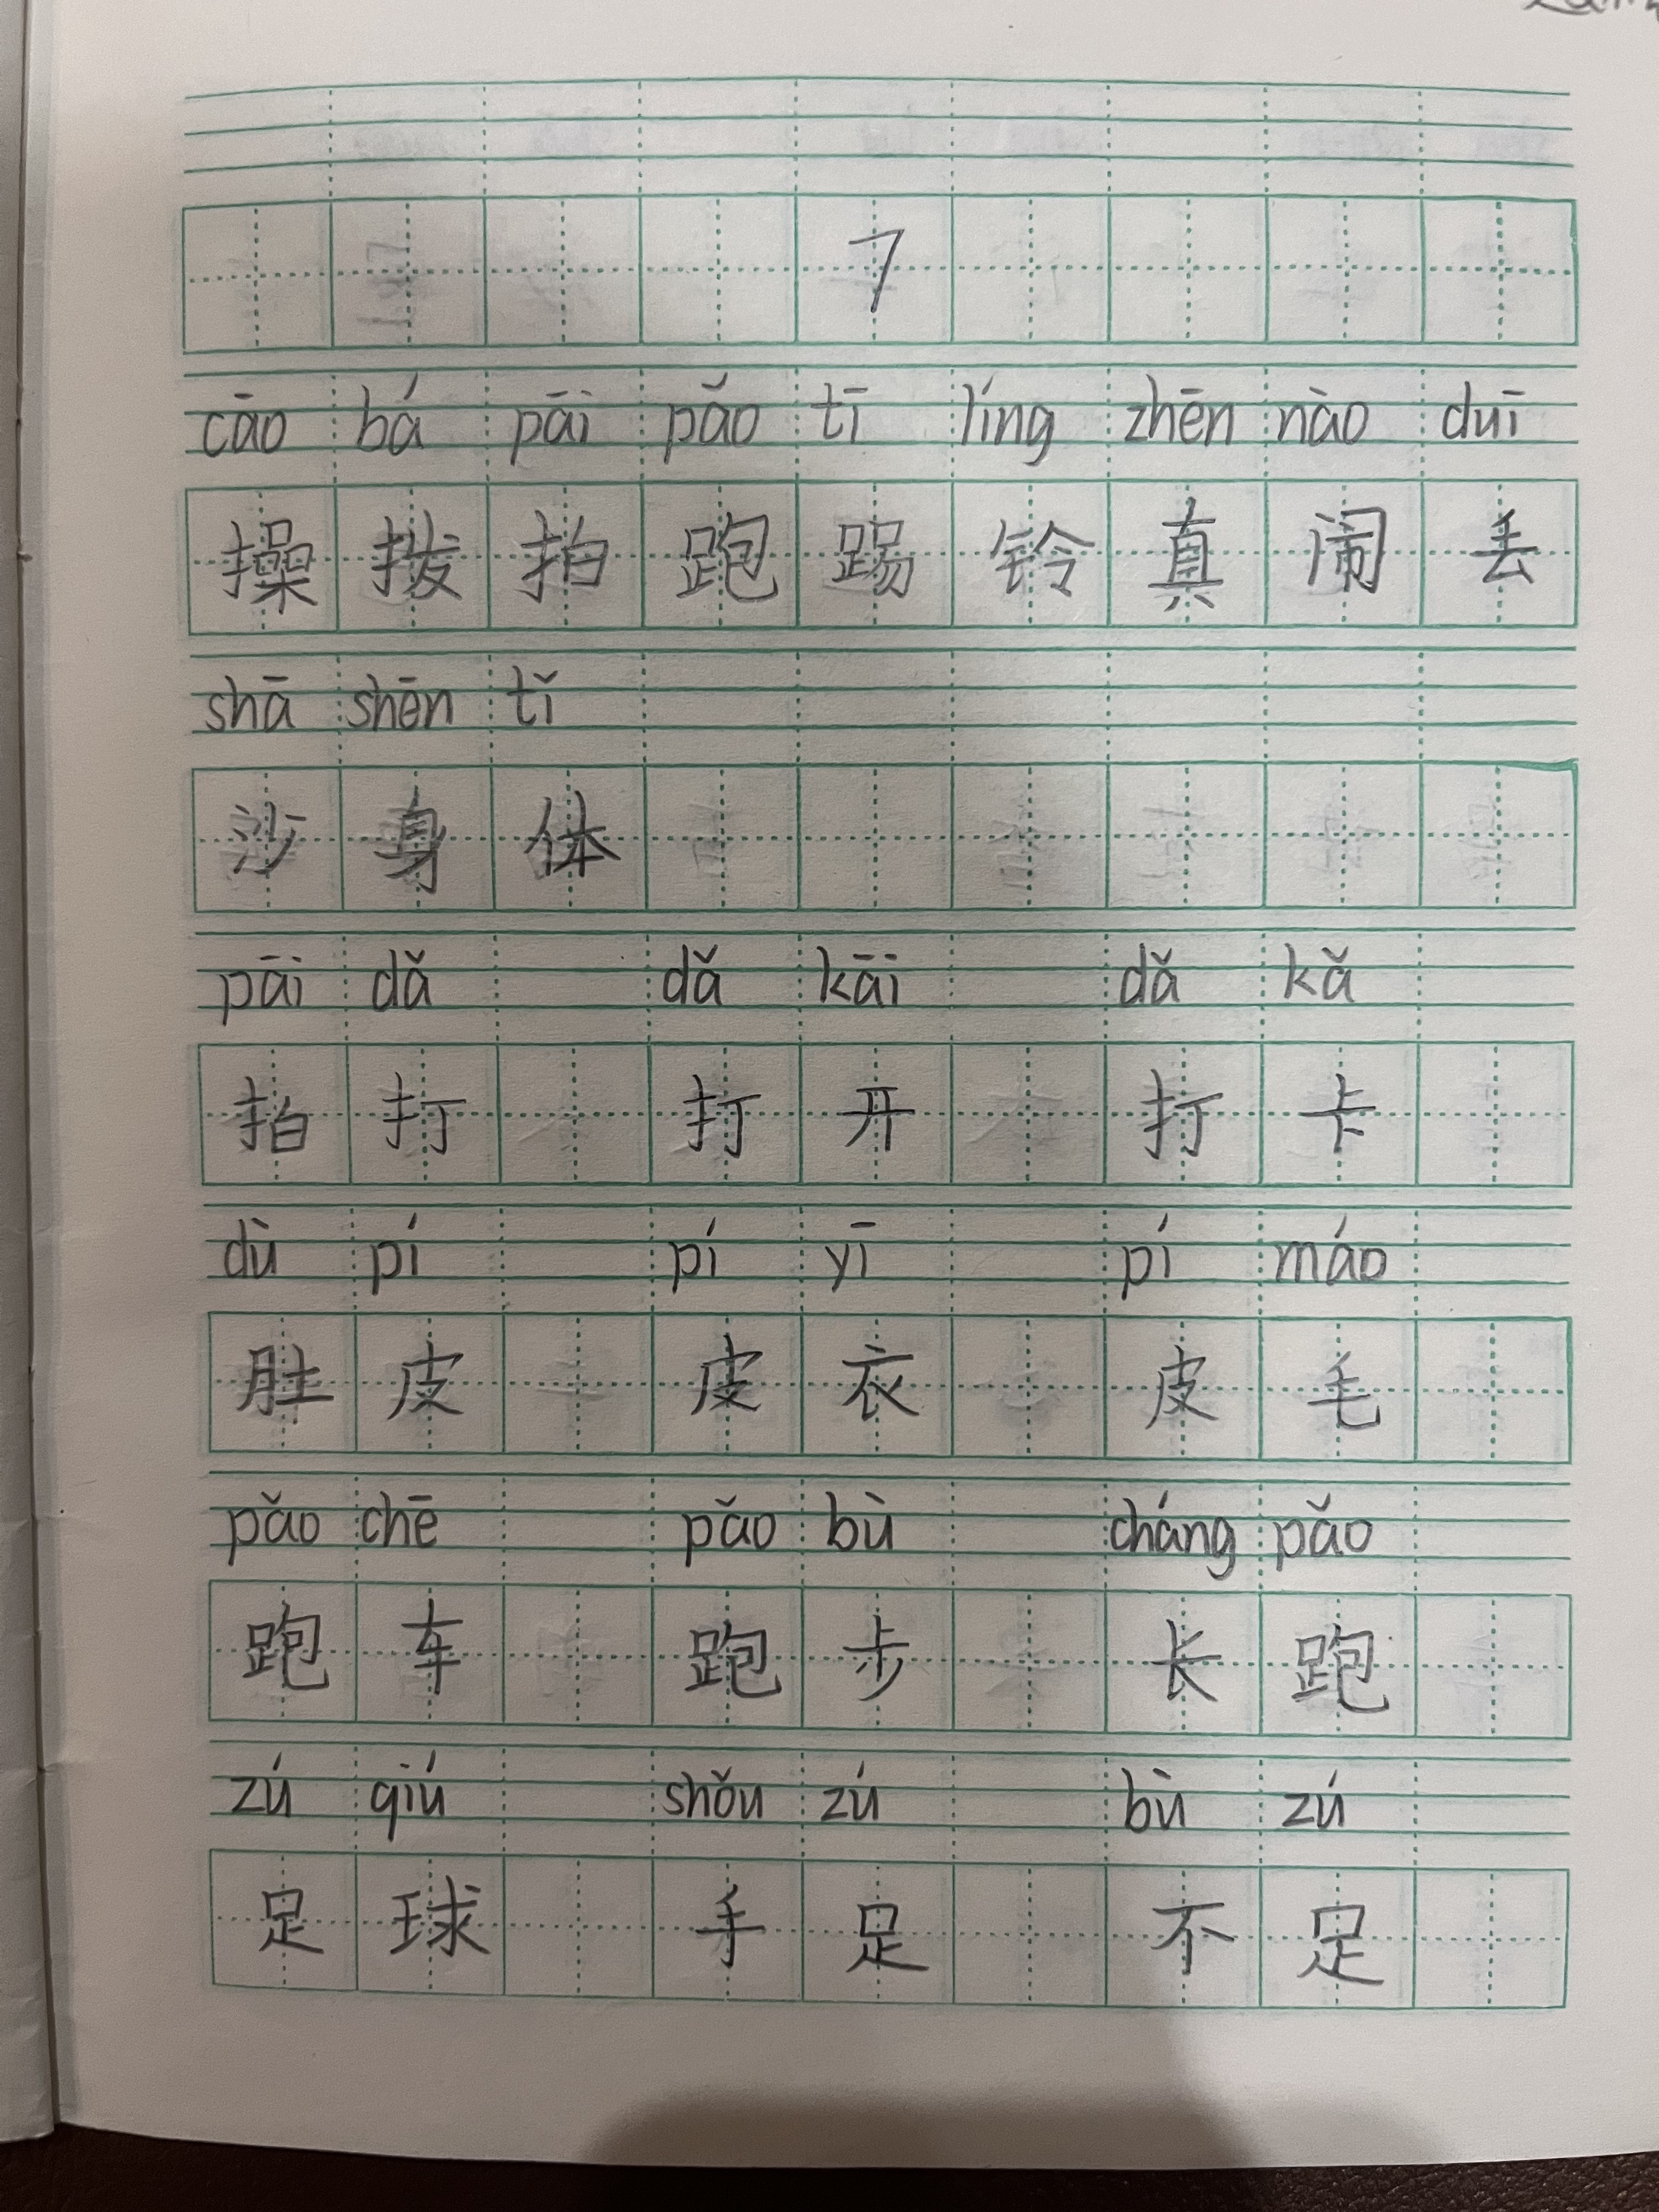 7
cāo bá pāi pǎo tī líng zhēn nào duī
操 拔 拍 跑 踢 铃 真 闹 丢
shā shēn tǐ
沙 身 体
pāi dǎ dǎ kāi dǎ kǎ
拍 打 打 开 打 卡
dù pí pí yī pí máo
肚 皮 皮 衣 皮 毛
pǎo chē pǎo bù cháng pǎo
跑 车 跑 步 长 跑
zú qiú shǒu zú bù zú
足 球 手 足 不 足